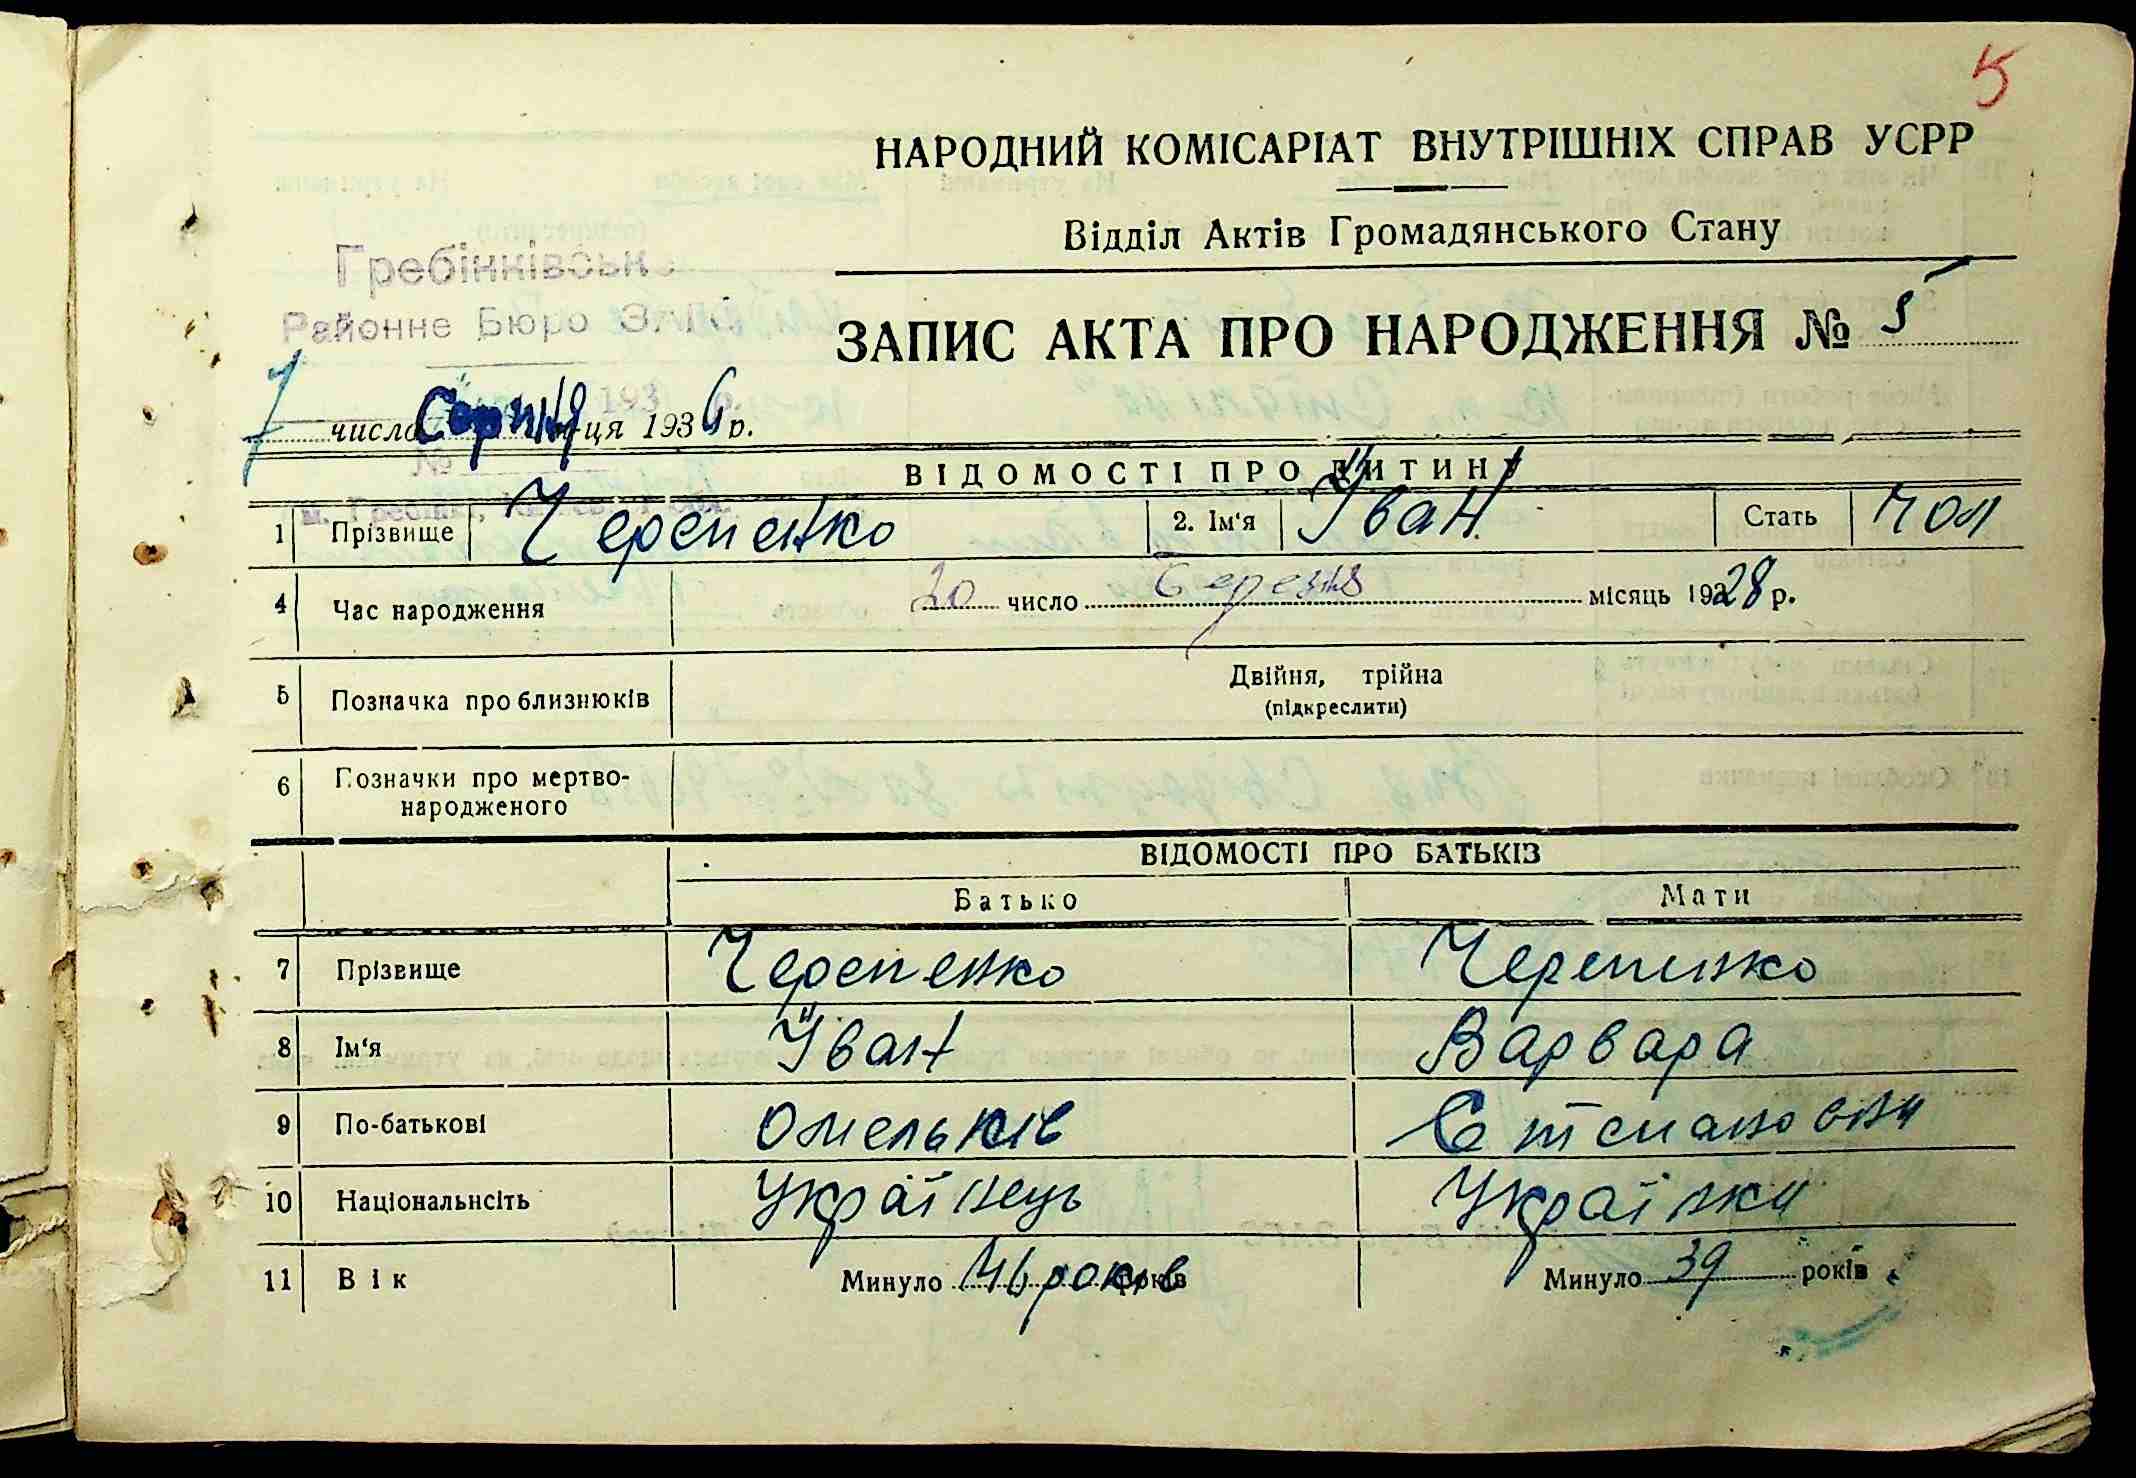 5
НАРОДНИЙ КОМІСАРІАТ ВНУТРІШНІХ СПРАВ УСРР
Відділ Актів Громадянського Стану
Гребінківськ
Районне Бюро ЗАГС
ЗАПИС АКТА ПРО НАРОДЖЕННЯ № 5
7 число Серпня місяця 1936 р.
ВІДОМОСТІ ПРО ДИТИНУ
1 Прізвище Черепенко 2. Ім'я Іван Стать Чол
4 Час народження 20 число Березня місяць 1928 р.
5 Позначка про близнюків Двійня, трійна
(підкреслити)
6 Позначки про мертво-
народженого
ВІДОМОСТІ ПРО БАТЬКІВ
Батько Мати
7 Прізвище Черепенко Черепенко
8 Ім'я Іван Варвара
9 По-батькові Омельків Степановни
10 Національнсіть Українець Українки
11 Вік Минуло 41 років років Минуло 39 років